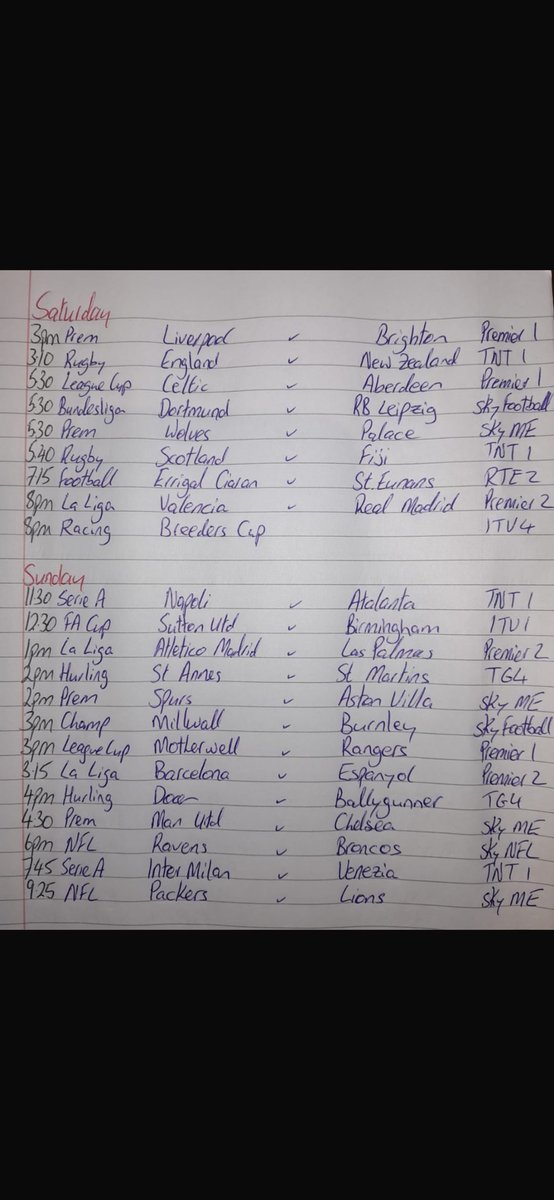 Saturday
3pm Prem Liverpool v Brighton Premier 1
310 Rugby England v New Zealand TNT 1
530 League Cup Celtic v Aberdeen Premier 1
530 Bundesliga Dortmund v RB Leipzig Sky Football
530 Prem Wolves v Palace Sky ME
540 Rugby Scotland v Fiji TNT 1
715 Football Errigal Ciaran v St. Eunans RTE 2
8pm La Liga Valencia v Real Madrid Premier 2
8pm Racing Breeders Cup ITV4
Sunday
1130 Serie A Napoli v Atalanta TNT 1
1230 FA Cup Sutton Utd v Birmingham ITV1
1pm La Liga Atletico Madrid v Las Palmas Premier 2
2pm Hurling St Annes v St Martins TG4
2pm Prem Spurs v Aston Villa Sky ME
3pm Champ Millwall v Burnley Sky Football
3pm League Cup Motherwell v Rangers Premier 1
315 La Liga Barcelona v Espanyol Premier 2
4pm Hurling v Ballygunner TG4
430 Prem Man Utd v Chelsea Sky ME
6pm NFL Ravens v Broncos Sky NFL
745 Serie A Inter Milan v Venezia TNT 1
925 NFL Packers v Lions Sky ME